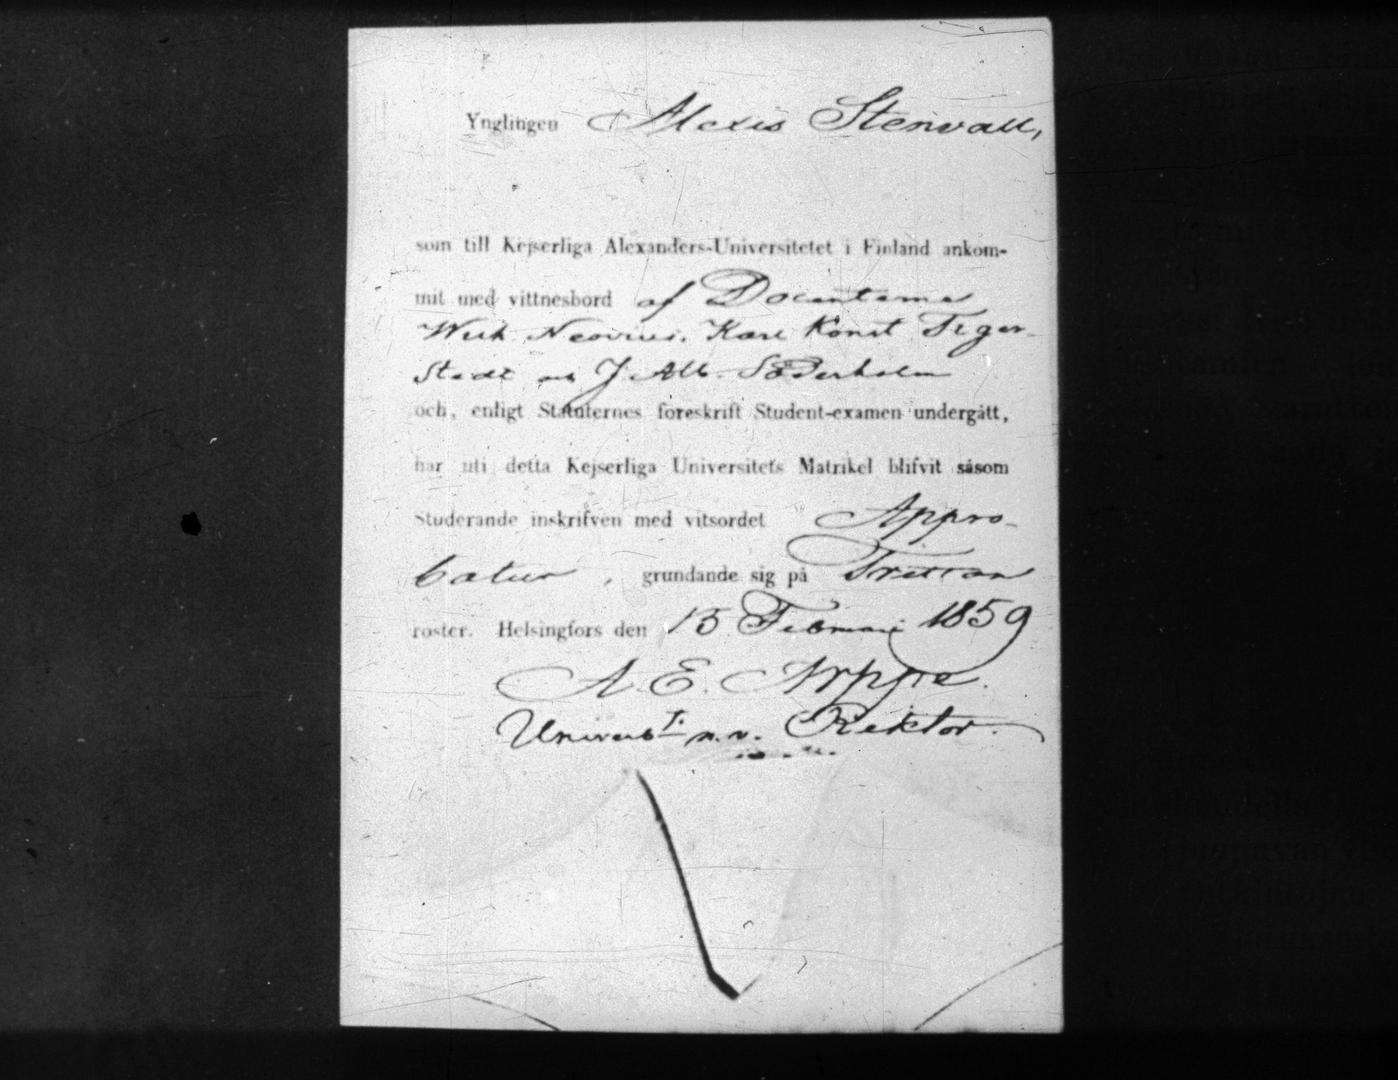 Ynglingen Alexis Stenvall,
som till Kejserliga Alexanders-Universitetet i Finland ankom-
mit med vittnesbord af Docenterne
Neovius, Karl Konst Tiger-
stedt och J. Alb. Söderholm
och, enligt Statuternes föreskrift Student-examen undergått,
har uti detta Kejserliga Universitets Matrikel blifvit såsom
Studerande inskrifven med vitsordet Appro-
batur, grundande sig på Tretton
röster. Helsingfors den 15 Februari 1859
A. E. Arppe.
Univers.ts n.v. Rektor.